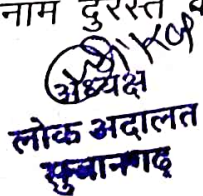 नाम दुरस्त
अध्यक्ष
लोक अदालत
सुजानगढ़